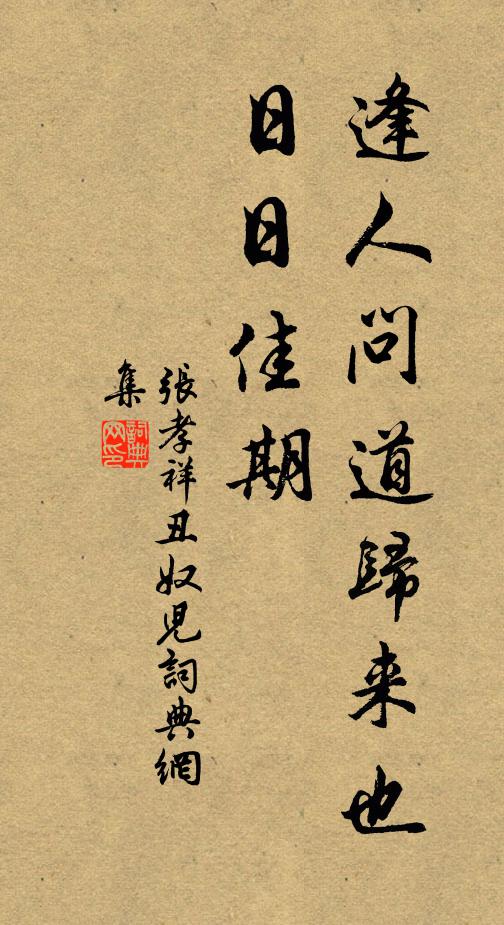 逢人問道歸来也
日日佳期
張孝祥丑奴兒詞典網
集
詞典
网印